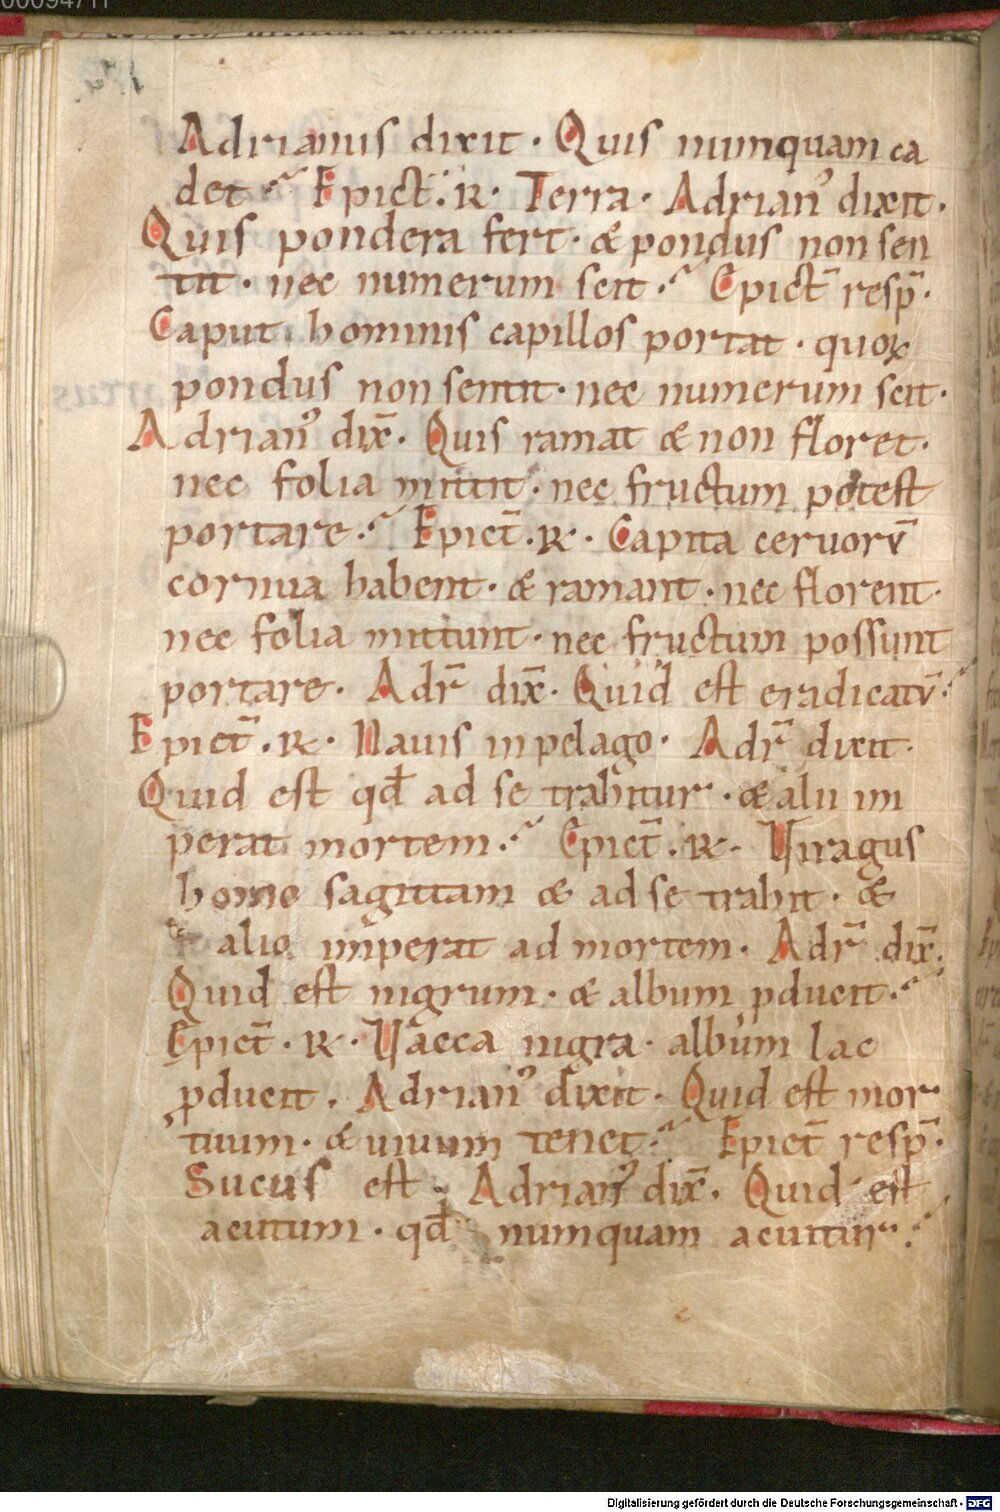 00094711
Adrianus dixit · Quis numquam ca
det Epict̄. R · Terra · Adrian᾽ dixit ·
Quis pondera fert · & pondus non sen
tit · nec numerum scit · Epict̄ resp̄ ·
Caput hominis capillos portat · quoꝝ
pondus non sentit · nec numerum scit ·
Adrian᾽ dix̄ · Quis ramat & non floret ·
nec folia mittit · nec fructum potest
portare · Epict̄ . R · Capita ceruorv̄
cornua habent · & ramant · nec florent ·
nec folia mittunt · nec fructum possunt
portare · Adr̄ dix̄ · Quid est eradicatv̄ ·
Epict̄ . R · Nauis in pelago · Adr̄ dixit ·
Quid est qđ ad se trahitur · & alii im
perat mortem · Epict̄ . R · Uiragus
homo sagittam & ad se trahit · &
alio imperat ad mortem · Adr̄ dix̄ ·
Quid est nigrum · & album ꝓducit ·
Epict̄ · R · Uacca nigra · album lac
ꝓducit . Adrian᾽ dixit · Quid est mor
tuum · & uiuum tenet · Epict̄ resp̄ ·
Sucus est · Adrian᾽ dix̄ · Quid est
acutum · qđ numquam acuitur ·
Digitalisierung gefördert durch die Deutsche Forschungsgemeinschaft - DFG